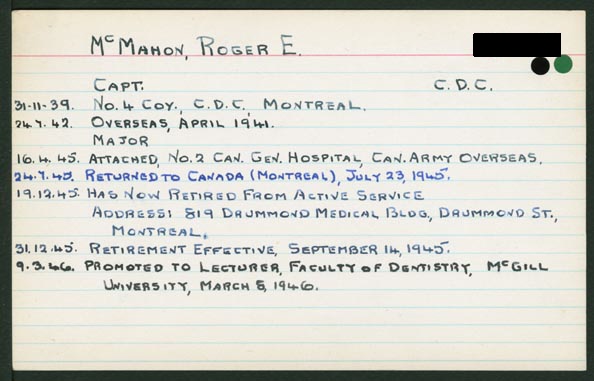 McMahon, Roger E.
Capt. C.D.C.
31-11-39. No. 4 Coy., C.D.C. Montreal.
24.7.42. Overseas, April 1941.
Major
16.4.45. Attached, No. 2 Can. Gen. Hospital, Can. Army Overseas.
24.7.45. Returned to Canada (Montreal), July 23, 1945.
19.12.45. Has Now Retired From Active Service
Address: 819 Drummond Medical Bldg, Drummond St.,
Montreal.
31.12.45. Retirement Effective, September 14, 1945.
9.3.46. Promoted to Lecturer, Faculty of Dentistry, McGill
University, March 8, 1946.